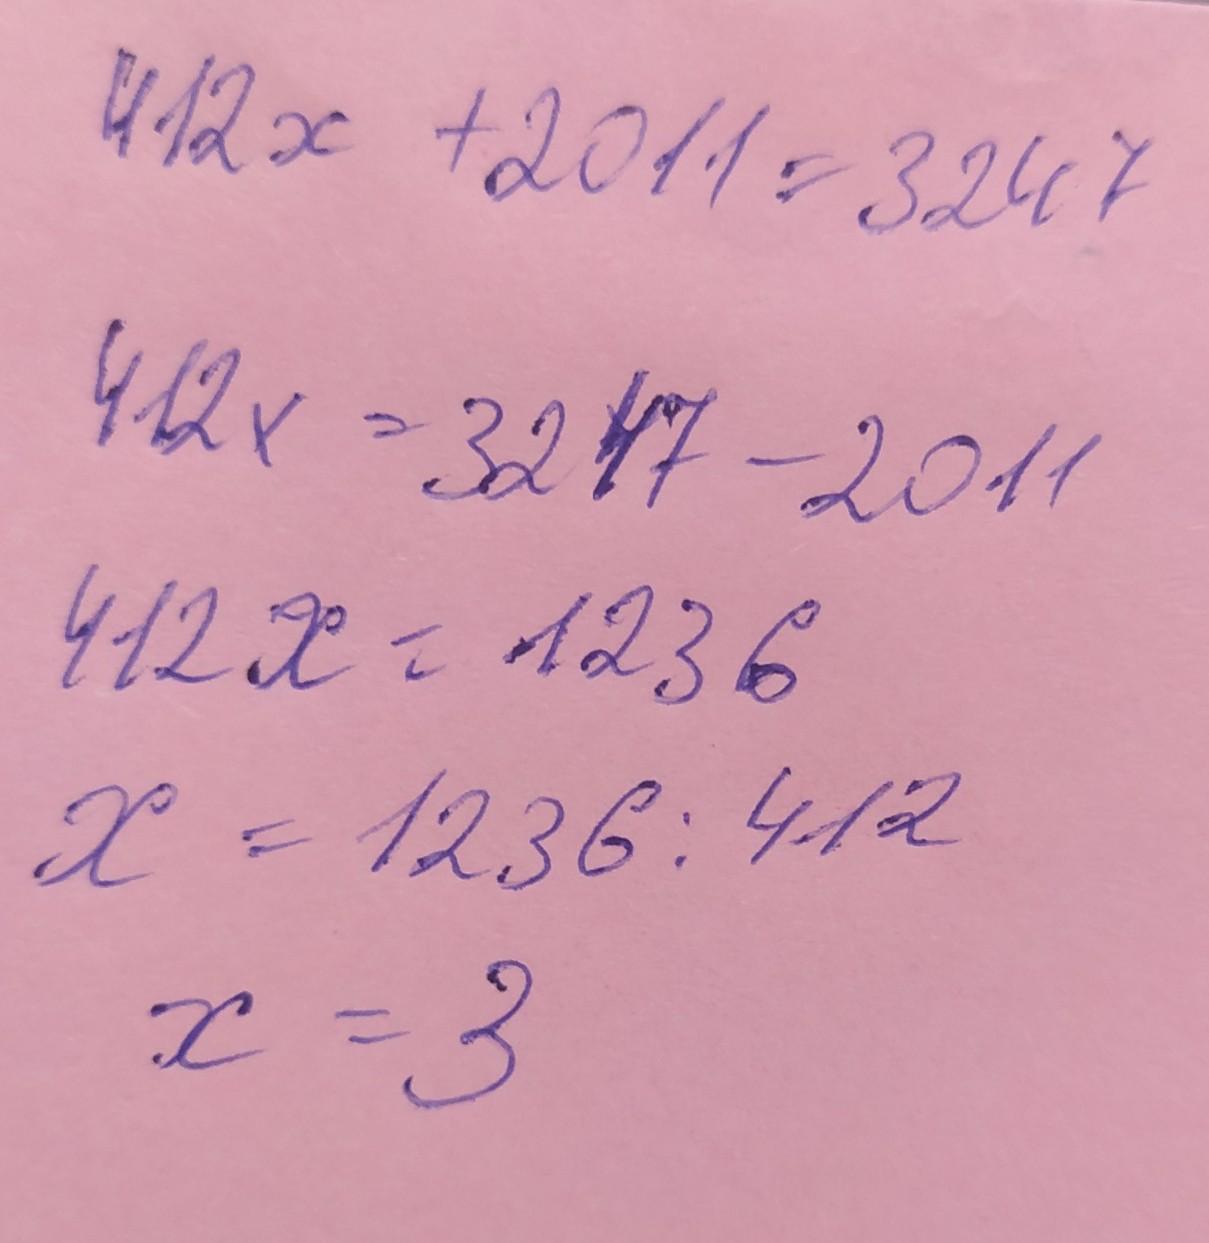 412x +2011=3247
412x =3247-2011
412x = 1236
x = 1236:412
x = 3